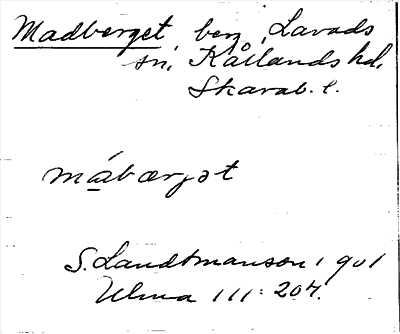 Madberget, berg, Lavads
sn, Kållands hd,
Skarab. l.
mábærjət
S. Landtmanson 1901
Ulma III: 204.